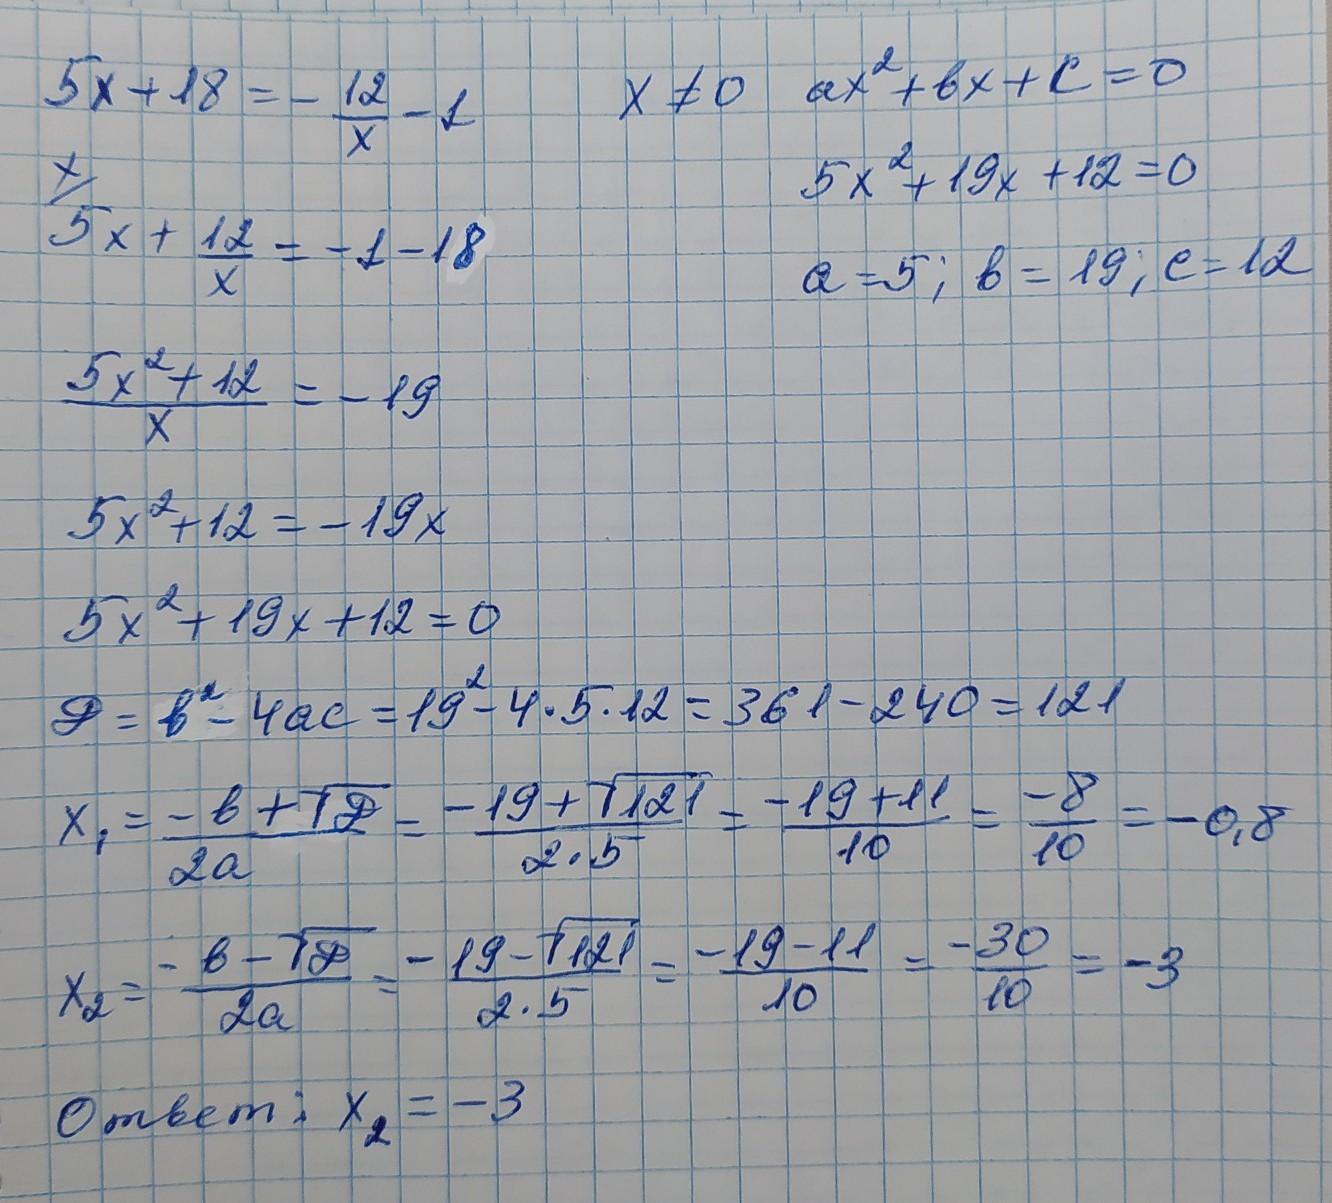 5x+18=-12/x-1   x≠0   ax²+bx+c=0
5x²+19x+12=0
x/
5x+12/x=-1-18
a=5; b=19; c=12
(5x²+12)/x=-19
5x²+12=-19x
5x²+19x+12=0
D=b²-4ac=19²-4·5·12=361-240=121
x₁=(-b+√D)/2a=(-19+√121)/(2·5)=(-19+11)/10=-8/10=-0,8
x₂=(-b-√D)/2a=(-19-√121)/(2·5)=(-19-11)/10=-30/10=-3
Ответ: x₂=-3